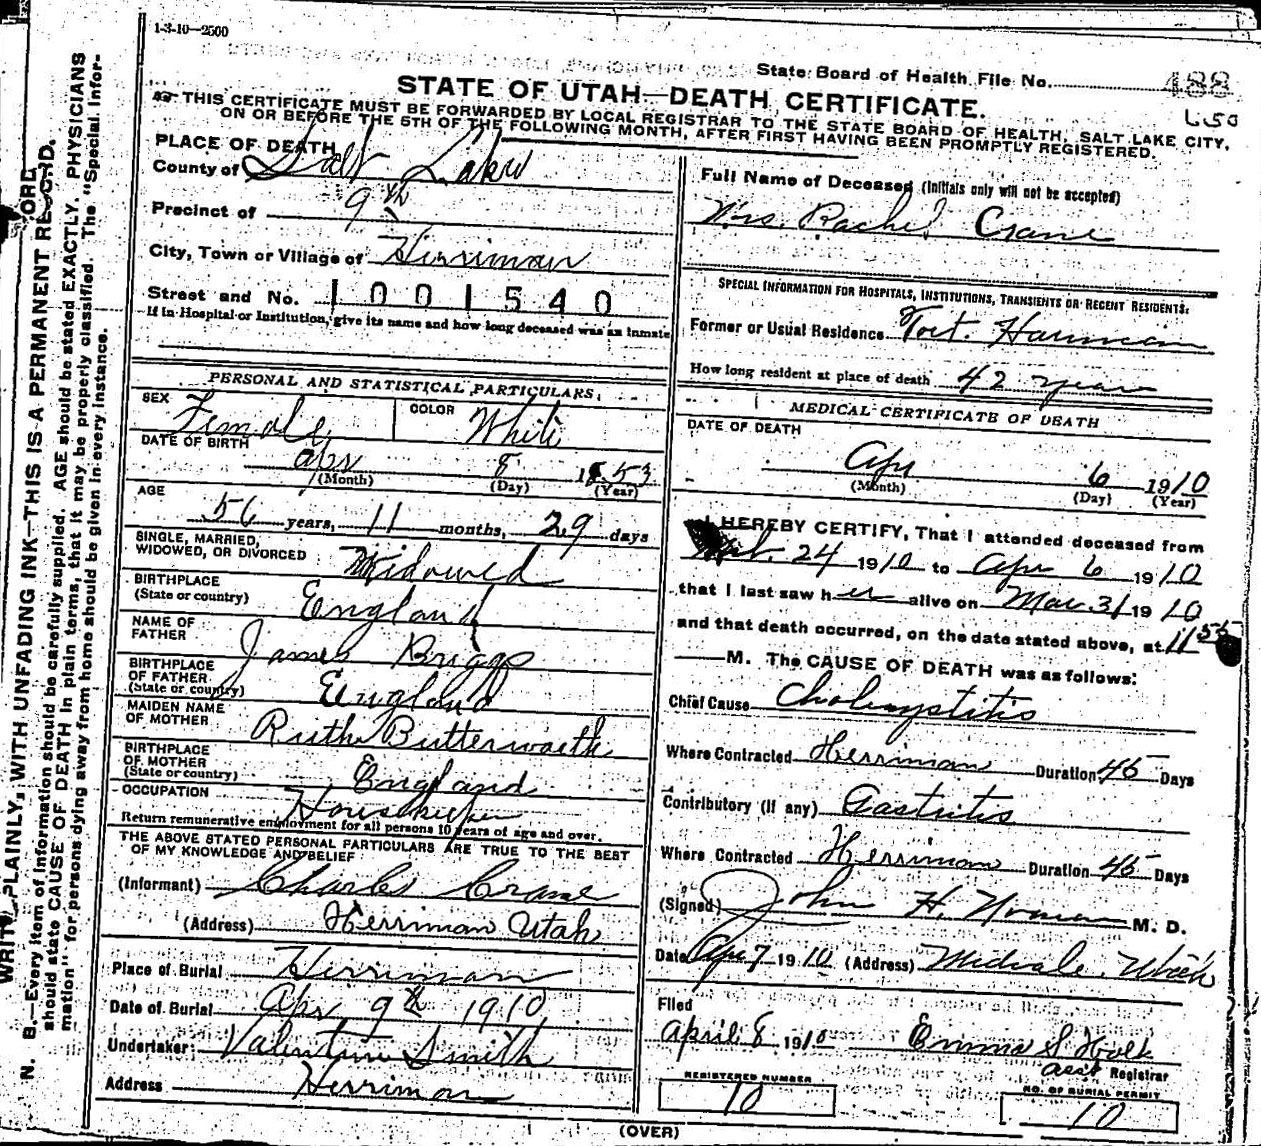 1-3-10—2500
State Board of Health File No. 488
STATE OF UTAH—DEATH CERTIFICATE.
THIS CERTIFICATE MUST BE FORWARDED BY LOCAL REGISTRAR TO THE STATE BOARD OF HEALTH, SALT LAKE CITY,
ON OR BEFORE THE 5TH OF THE FOLLOWING MONTH, AFTER FIRST HAVING BEEN PROMPTLY REGISTERED.
PLACE OF DEATH
County of Salt Lake
Precinct of 9th
City, Town or Village of Herriman
Street and No. 1001540
If in Hospital or Institution, give its name and how long deceased was an inmate
PERSONAL AND STATISTICAL PARTICULARS.
SEX Female COLOR White
DATE OF BIRTH
Apr 8 1853
(Month) (Day) (Year)
AGE
56 years, 11 months, 29 days
SINGLE, MARRIED,
WIDOWED, OR DIVORCED Widowed
BIRTHPLACE
(State or country) England
NAME OF
FATHER James Briggs
BIRTHPLACE
OF FATHER
(State or country) England
MAIDEN NAME
OF MOTHER Ruth Butterworth
BIRTHPLACE
OF MOTHER
(State or country) England
OCCUPATION Housekeeper
Return remunerative employment for all persons 10 years of age and over.
THE ABOVE STATED PERSONAL PARTICULARS ARE TRUE TO THE BEST
OF MY KNOWLEDGE AND BELIEF
(Informant) Charles Crane
(Address) Herriman Utah
Place of Burial Herriman
Date of Burial Apr 9th 1910
Undertaker: Valentine Smith
Address Herriman
Full Name of Deceased (Initials only will not be accepted)
Mrs. Rachel Crane
SPECIAL INFORMATION FOR HOSPITALS, INSTITUTIONS, TRANSIENTS OR RECENT RESIDENTS:
Former or Usual Residence Fort. Harriman
How long resident at place of death 42 years
MEDICAL CERTIFICATE OF DEATH
DATE OF DEATH
Apr 6 1910
(Month) (Day) (Year)
I HEREBY CERTIFY, That I attended deceased from
24 1910 to Apr 6 1910
that I last saw her alive on Mar 31 1910
and that death occurred, on the date stated above, at 11 55
M. The CAUSE OF DEATH was as follows:
Chief Cause Cholecystitis
Where Contracted Herriman Duration 45 Days
Contributory (if any) Gastritis
Where Contracted Herriman Duration 45 Days
(Signed) John H. M. D.
Date Apr 7 1910 (Address) Midvale. Utah
Filed
April 8 1910 Emma S
asst Registrar
REGISTERED NUMBER
10
NO. OF BURIAL PERMIT
10
(OVER)
WRITE PLAINLY, WITH UNFADING INK—THIS IS A PERMANENT RECORD.
N. B.—Every item of information should be carefully supplied. AGE should be stated EXACTLY. PHYSICIANS
should state CAUSE OF DEATH in plain terms, that it may be properly classified. The "Special Infor-
mation" for persons dying away from home should be given in every instance.